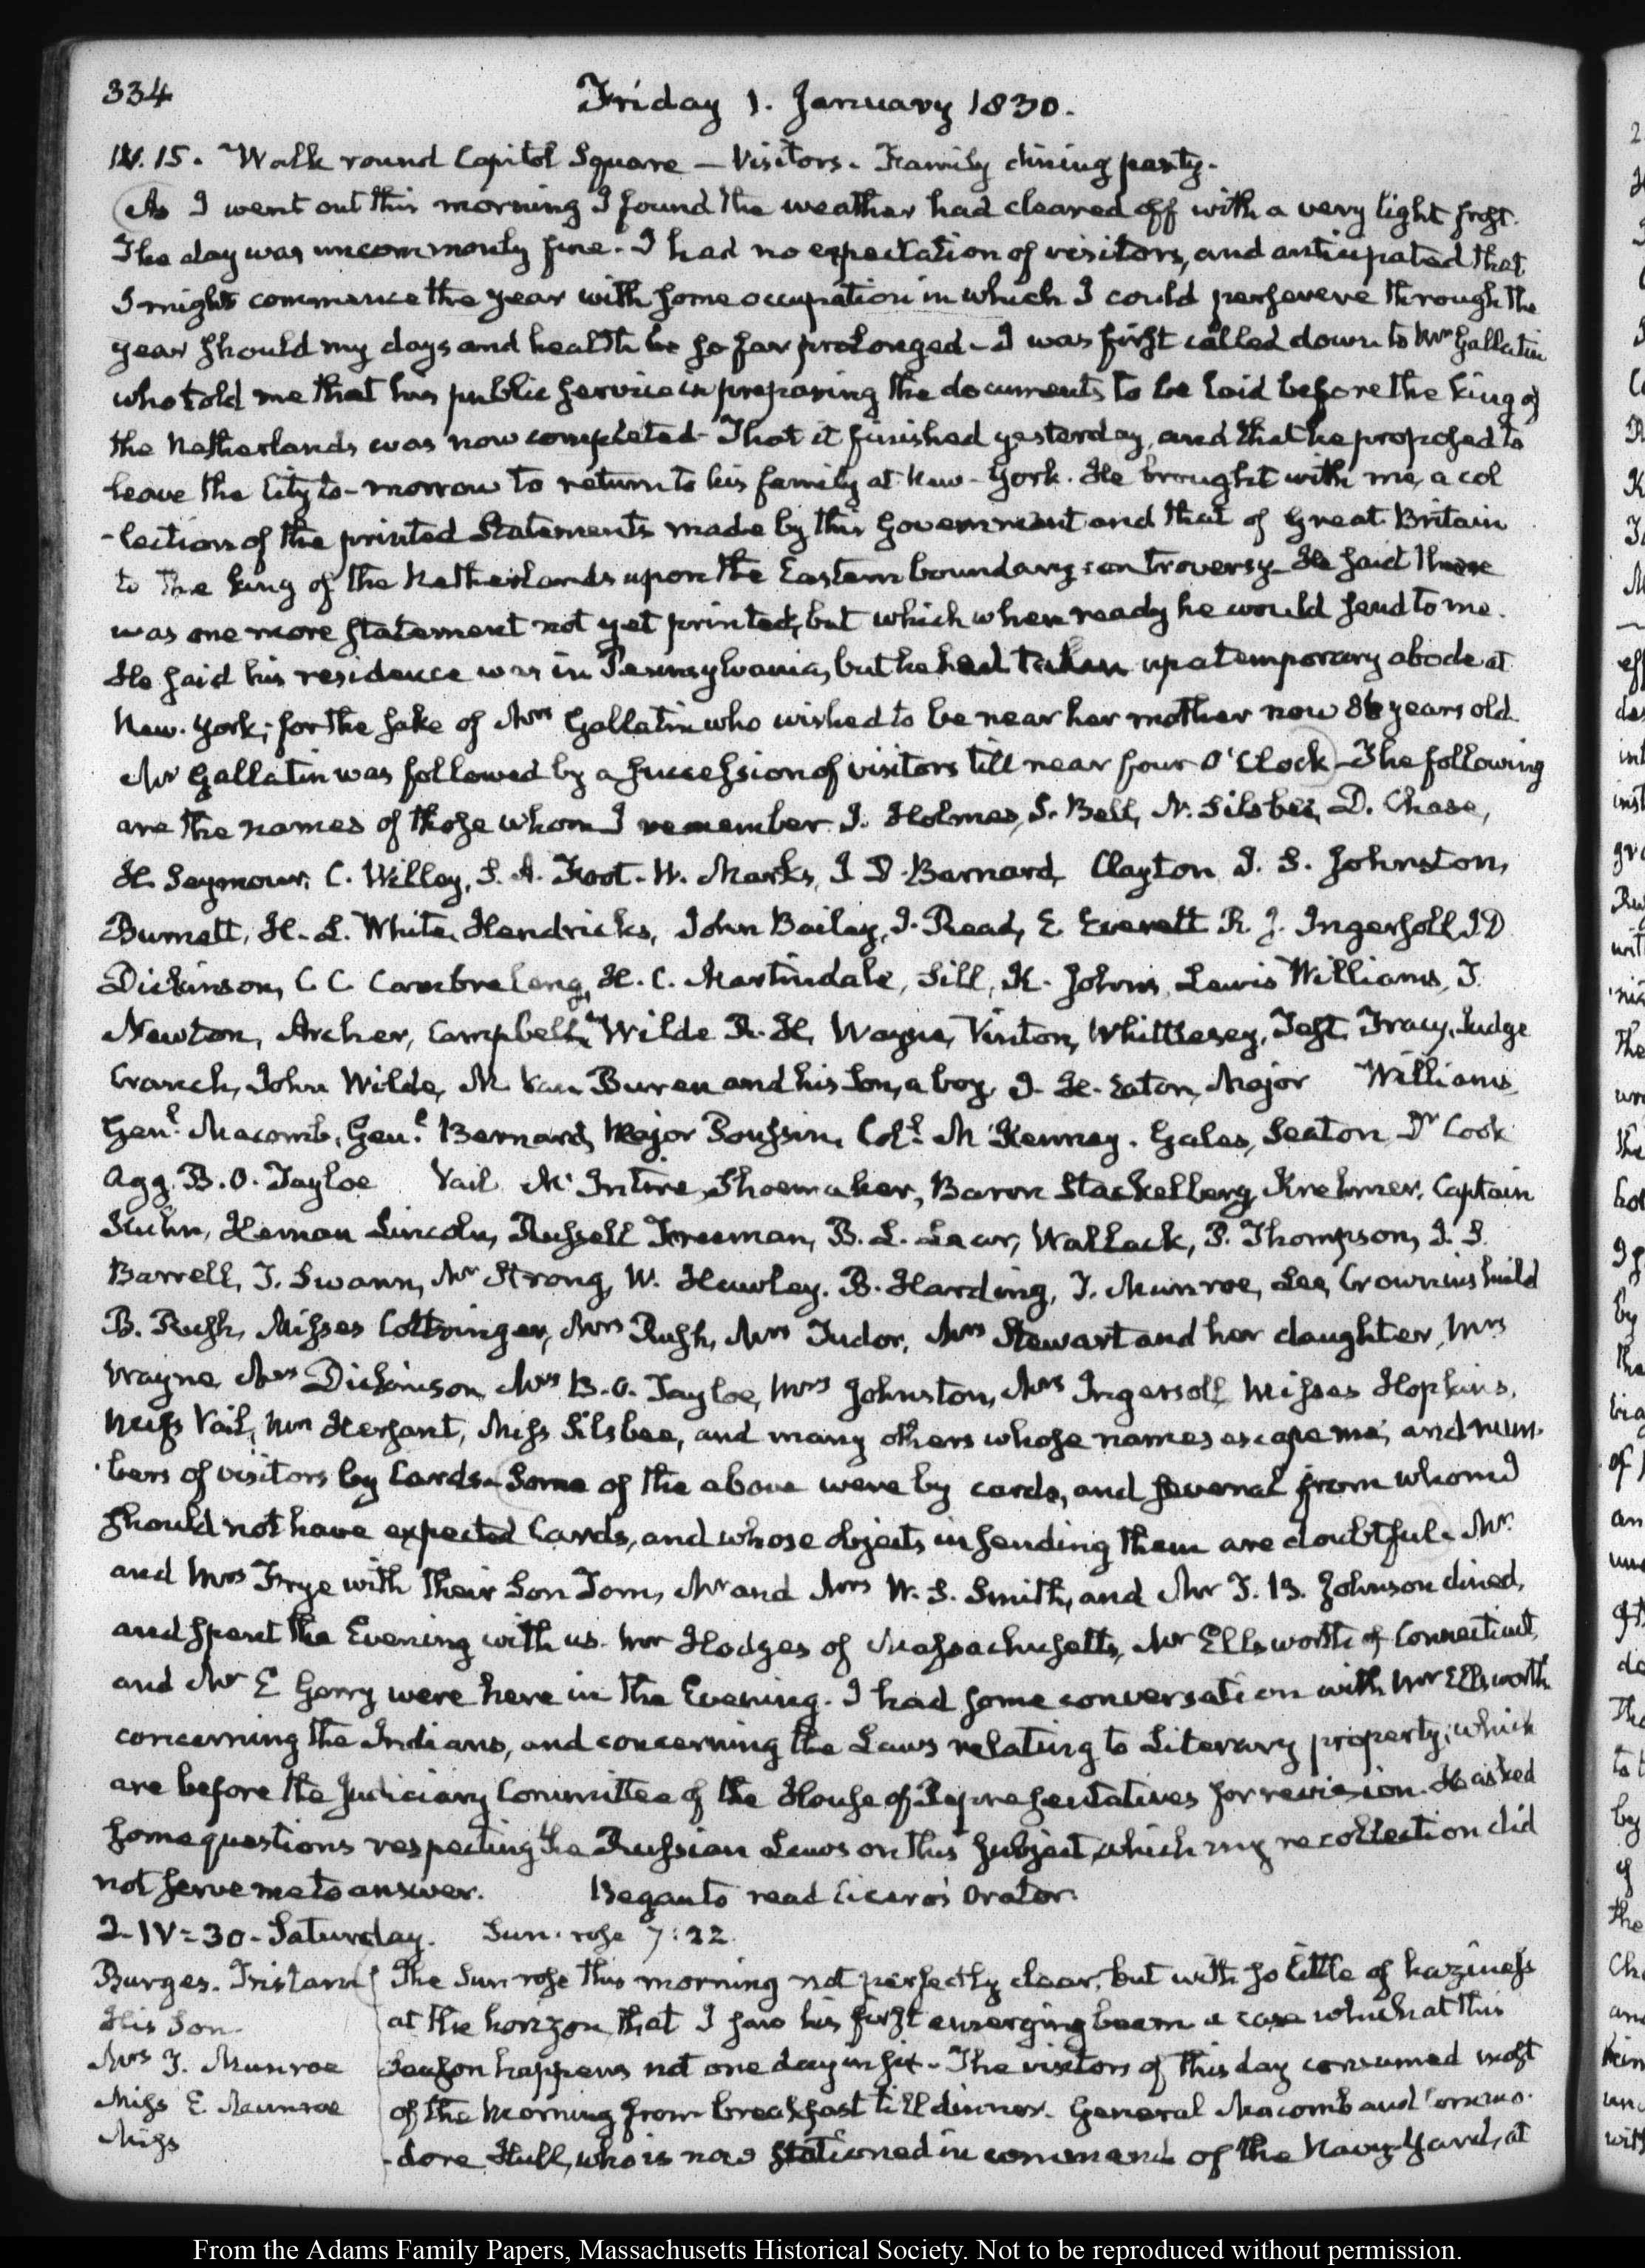 334
Friday 1. January 1830.
IV. 15. Walk round Capitol Square — Visitors. Family dining party.
As I went out this morning I found the weather had cleared off with a very light frost.
The day was uncommonly fine. I had no expectation of visitors, and anticipated that
I might commence the year with some occupation in which I could persevere through the
year should my days and health be so far prolonged. I was first called down to Mr Gallatin
who told me that his public service in preparing the documents to be laid before the king of
the Netherlands was now completed. That it finished yesterday, and that he proposed to
leave the City to-morrow to return to his family at New-York. He brought with me, a col
-lection of the printed Statements made by this Government and that of Great Britain
to the king of the Netherlands upon the Eastern boundary controversy. He said there
was one more statement not yet printed, but which when ready he would send to me.
He said his residence was in Pennsylvania, but he had taken up a temporary abode at
New-York; for the sake of Mrs Gallatin who wished to be near her mother now 86 years old.
Mr Gallatin was followed by a succession of visitors till near four O'Clock. The following
are the names of those whom I remember. J. Holmes, S. Bell, N. Silsbee, D. Chase,
H. Seymour, C. Willey, S. A. Foot. W. Marks, I D. Barnard, Clayton J. S. Johnston,
Burnett, H. L. White, Hendricks, John Bailey, J. Read, E. Everett R. J. Ingersoll, J D
Dickinson, C C Cambreleng, H. C. Martindale, Sill, K. Johns, Lewis Williams, T.
Newton, Archer, Campbell, Wilde R. H, Wayne, Vinton, Whittlesey, Test, Tracy, Judge
Cranch, John Wilde, M. Van Buren and his Son, a boy, J. H. Eaton, Major Williams
Genl. Macomb, Genl. Bernard, Major Poussin, Coll. McKenney. Gales, Seaton, Dr Cook
Ogg, B. O. Tayloe Vail McIntire, Shoemaker, Baron Stackelberg, Krehmer, Captain
Kuhn, Heman Lincoln, Russell Freeman, B. L. Lear, Wallack, P. Thompson, I. S.
Barrell, T. Swann, Mr Strong, W. Hawley. B. Harding, T. Munroe, Lee, Crowninshield
B. Rush, Misses Cottringer, Mrs Rush, Mrs Tudor, Mrs Stewart and her daughter, Mrs
Wayne, Mrs Dickinson, Mrs B. O. Tayloe, Mrs Johnston, Mrs Ingersoll, Misses Hopkins,
Miss Vail, Mrs Hersant, Miss Silsbee, and many others whose names escape me, and num-
-bers of visitors by Cards. Some of the above were by cards, and several from whom I
should not have expected Cards, and whose objects in sending them are doubtful. Mr.
and Mrs Frye with their Son Tom, Mr and Mrs W. S. Smith, and Mr T. B. Johnson dined,
and spent the Evening with us. Mr Hodges of Massachusetts, Mr Ellsworth of Connecticut,
and Mr E Gerry were here in the Evening. I had some conversation with Mr Ellsworth
concerning the Indians, and concerning the Laws relating to Literary property, which
are before the Judiciary Committee of the House of Representatives for revision. He asked
some questions respecting the Russian Laws on this subject, which my recollection did
not serve me to answer. Began to read Cicero's Orator.
2. IV=30. Saturday. Sun. rose 7:22.
Burges. Tristam
His Son.
Mrs T. Munroe
Miss E Munroe
Miss
The Sun rose this morning not perfectly clear, but with so little of haziness
at the horizon that I saw his first emerging beam a case which at this
Season happens not one day in six. The visitors of this day consumed most
of the Morning from breakfast till dinner. General Macomb and Commo-
-dore Hull, who is now stationed in command of the Navy-Yard, at
From the Adams Family Papers, Massachusetts Historical Society. Not to be reproduced without permission.